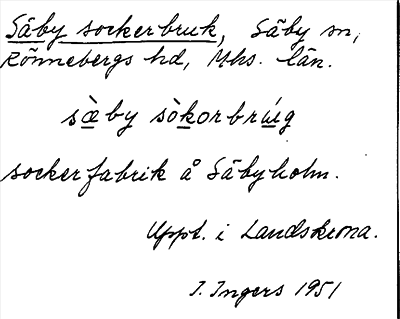 Säby sockerbruk, Säby sn,
Rönnebergs hd, Mhs. län.
sὰ̱by sòḵorbrúi̱g
sockerfabrik å Säbyholm.
Uppt. i Landskrona.
I. Ingers 1951